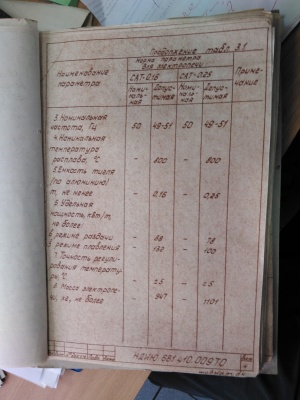 Продолжение табл. 3.1
Наименование параметра
Норма параметра для электропечи
Примечание
САТ-0,16 САТ-0,25
Номинальная Допустимая Номинальная Допустимая
3. Номинальная
частота, Гц 50 49-51 50 49-51
4. Номинальная
температура
расплава, °С - 800 - 800
5. Емкость тигля
(по алюминию)
т, не менее - 0,16 - 0,25
6. Удельная
мощность, кВт/т,
не более:
в режиме раздачи - 88 - 78
в режиме плавления - 100
7. Точность регули-
рования температу-
ры, °С - ±5 - ±5
8. Масса электропе-
чи, кг, не более - 1101